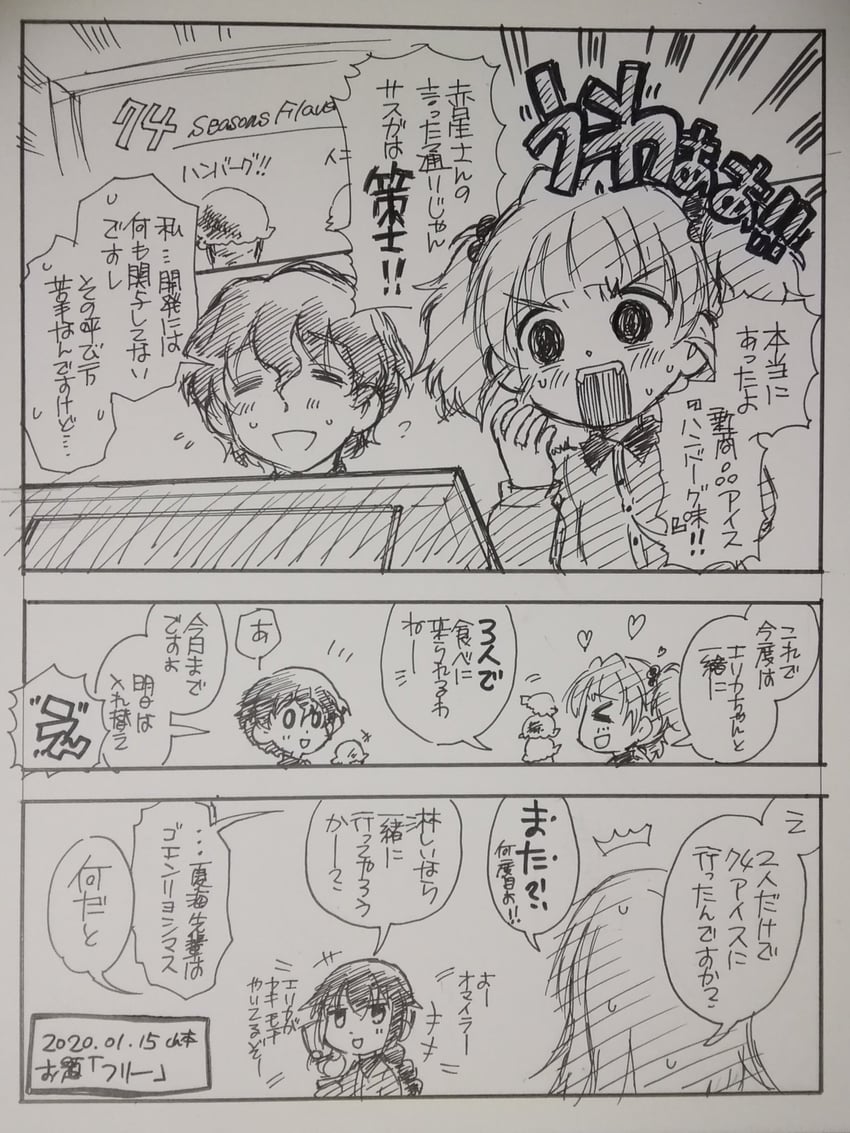 うわぁぁ!!!
本当に
あったよ
新商品アイス
『ハンバーグ味』!!
赤星さんの
言ってた通りじゃん
サスガは
策士!!
74 Seasons Flavo
ハンバーグ!!
私…開発には
何も関与してない
ですし
その呼び方
苦手なんですけど…
これで
今度は
エリカちゃんと
一緒に
3人で
食べに
来られるわ
ねー
あ
今日まで
ですよ
明日は
入れ替え
え゛
え
2人だけで
74アイスに
行ったんですか?
また?!
何度目よ!!
淋しいなら
一緒に
行ってやろう
かー?
おー
オマイラー
エリカが
ヤキモチ
やいてるぞー
…夏海先輩は
ゴエンリョシマス
何だと
2020.01.15 山本
お題「フリー」